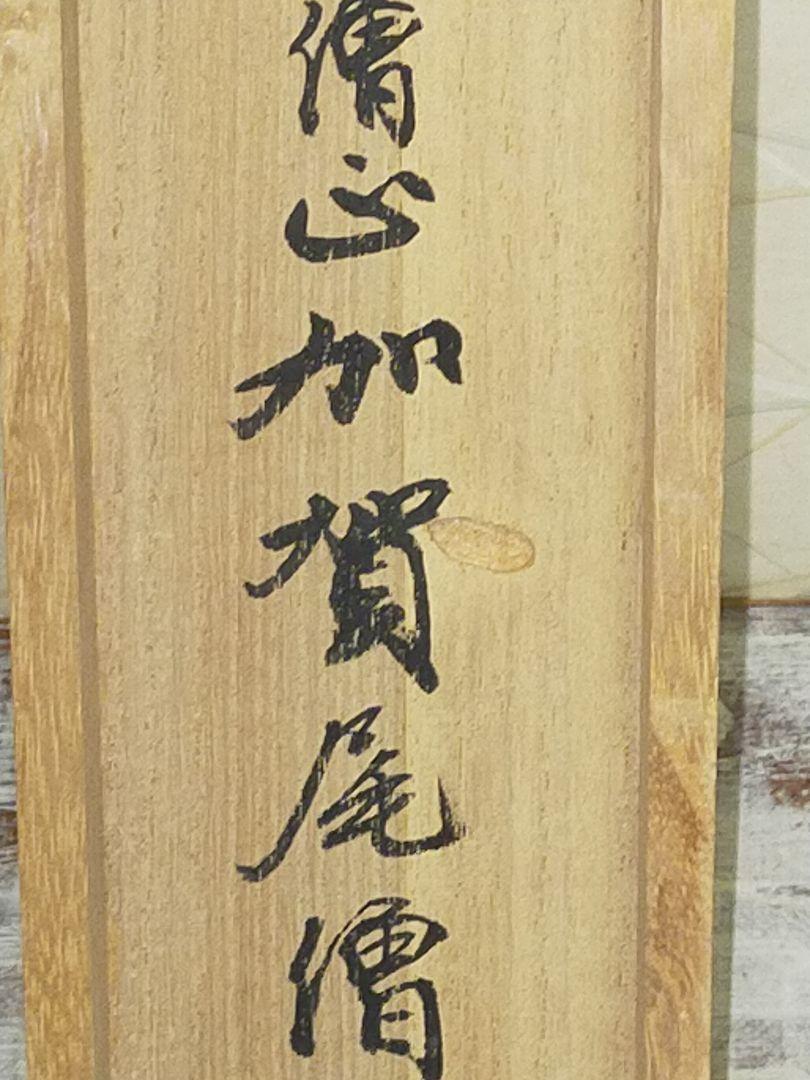 僧正加賀尾僧